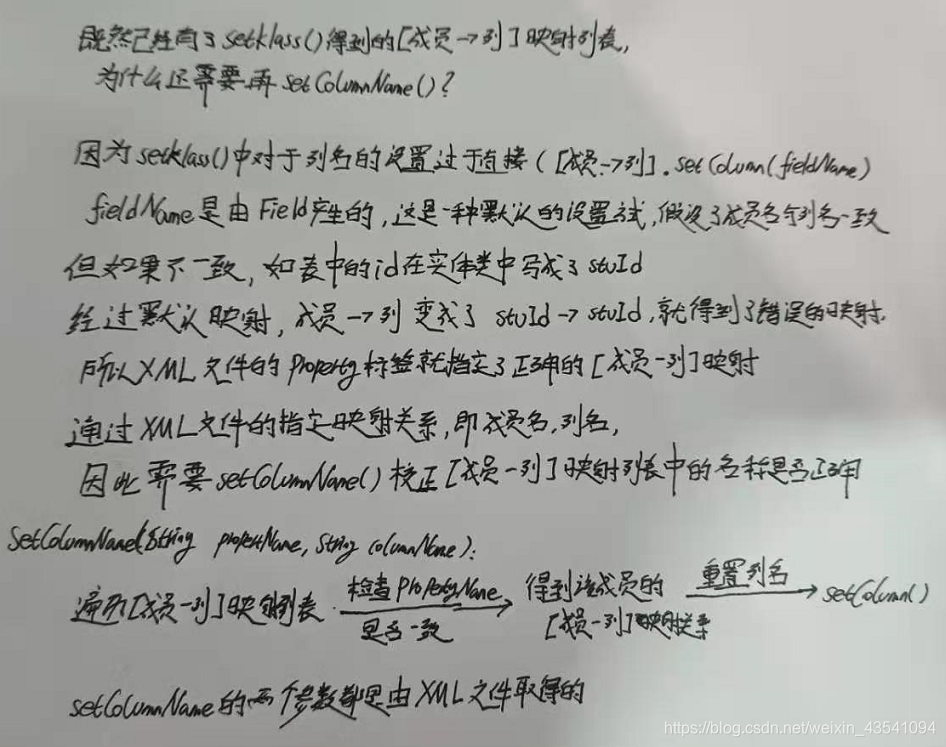 既然已经有了setklass()得到的[成员→列]映射列表,
为什么还需要再setColumnName()?
因为setklass()中对于列名的设置过于直接([成员→列].setColumn(fieldName)
fieldName是由Field产生的,这是一种默认的设置方式,假设了成员名与列名一致
但如果不一致,如表中的id在实体类中写成了stuId
经过默认映射,成员→列 变成了 stuId→stuId,就得到了错误的映射.
所以XML文件的Property标签就指定了正确的[成员-列]映射
通过XML文件的指定映射关系,即成员名,列名,
因此需要setColumnName()校正[成员-列]映射列表中的名称是否正确
SetColumnName(String propertName, String columnName):
遍历[成员-列]映射列表 检查PropertyName 是否一致 得到该成员的 [成员-列]映射关系 重置列名 setColumn()
setColumnName的两个参数都是由XML文件取得的
https://blog.csdn.net/weixin_43541094